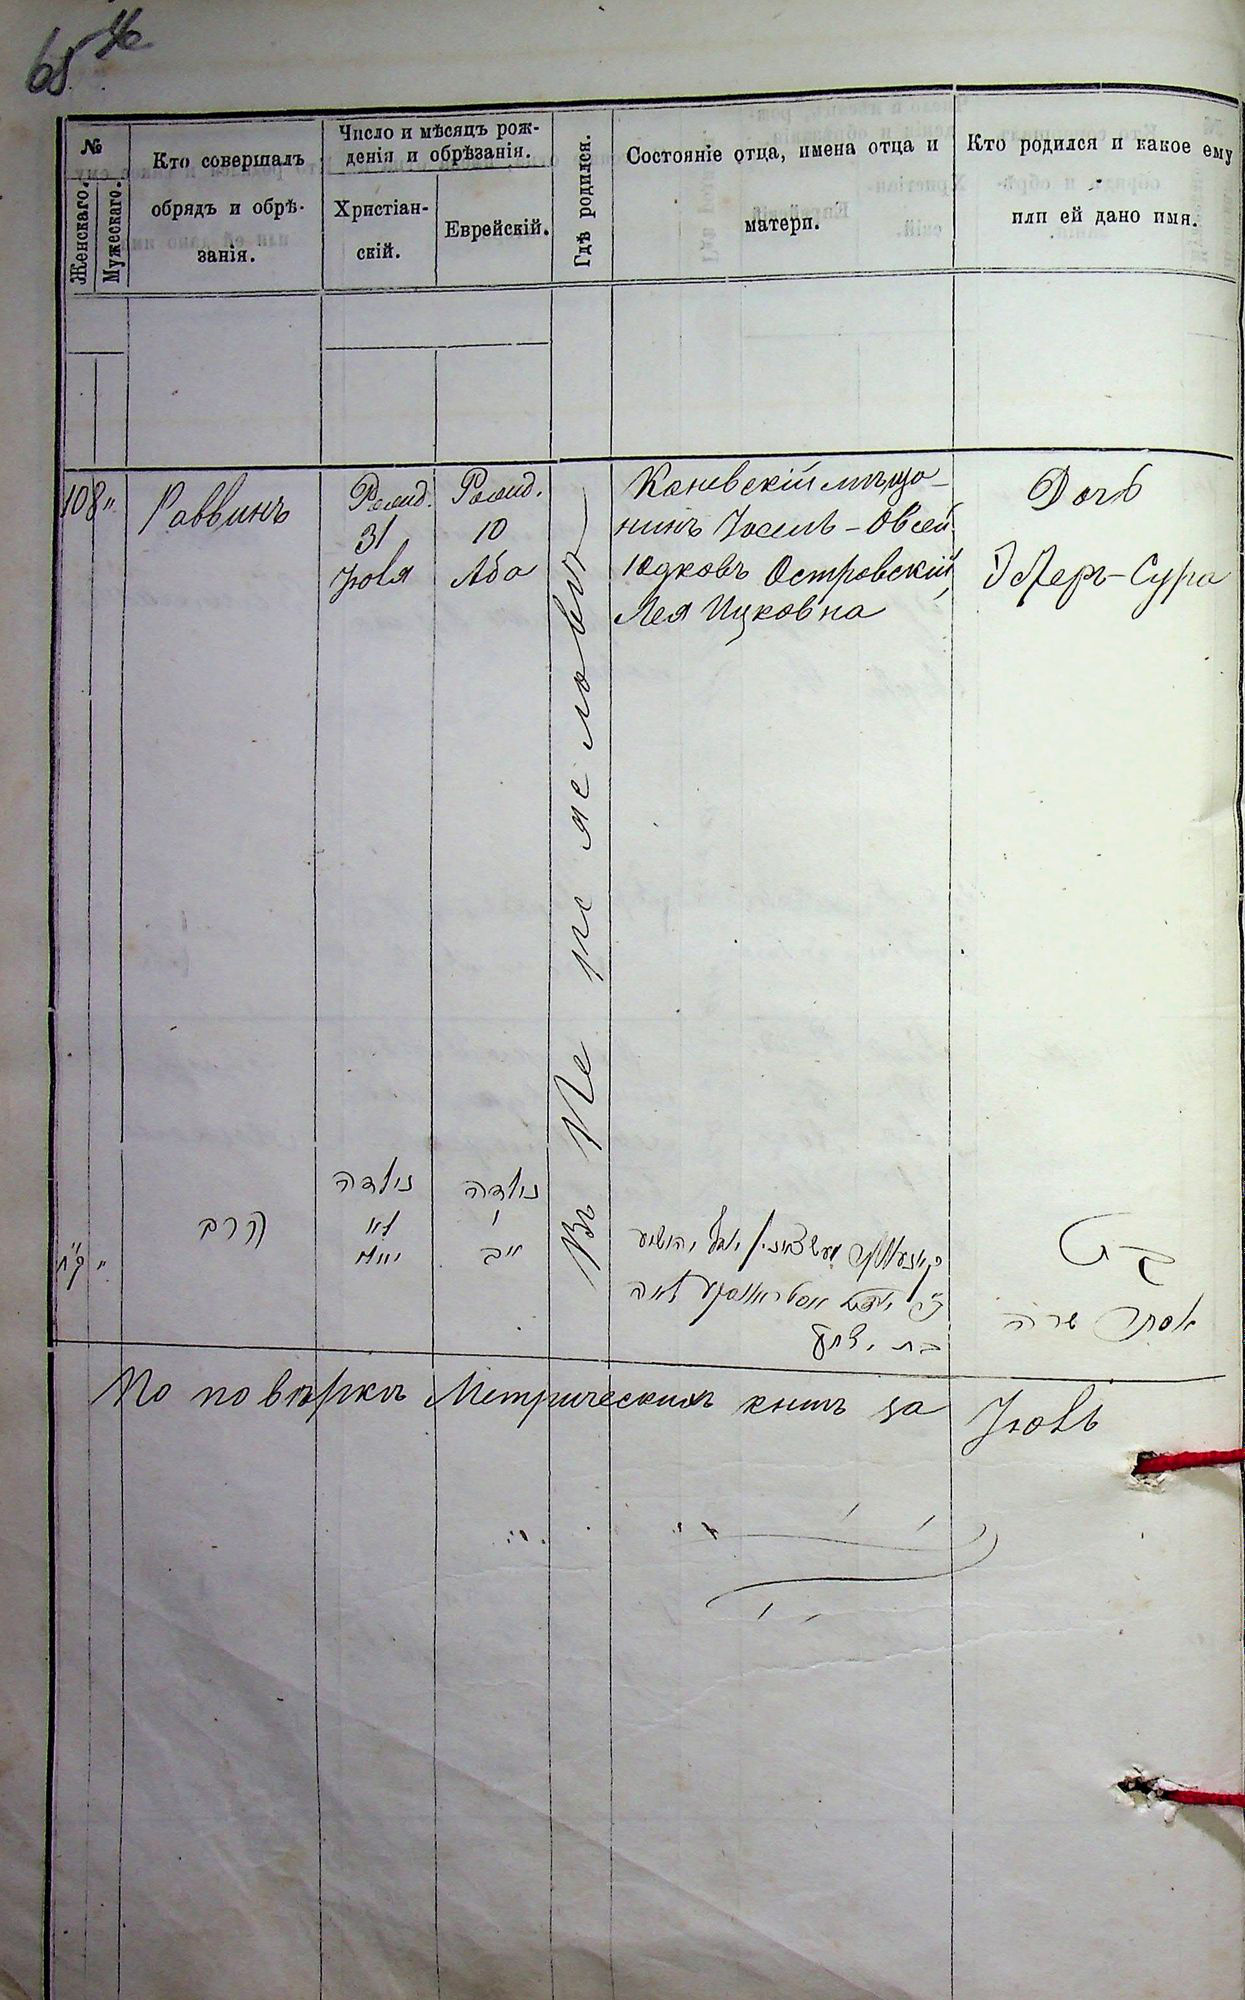 65
№
Женскаго.
Мужескаго.
Кто совершалъ
обрядъ и обрѣ-
занія.
Число и мѣсяцъ рож-
денія и обрѣзанія.
Христіан-
скій.
Еврейскій.
Гдѣ родился.
Состояніе отца, имена отца и
матери.
Кто родился и какое ему
или ей дано имя.
108 "
Раввинъ
Рожд.
31
Іюля
Рожд.
10
Аба
Въ Переяславѣ
Каневскій мѣща-
нинъ Іосель-Овсей
Юдковъ Островскій,
Лея Ицковна
Дочь
Эстеръ-Сура
ק״ח "
הרב
נולדה
לא
יולי
נולדה
י
אב
יהושע
לאה
בת
בת
אסתר שרה
По повѣркѣ Метрическихъ книгъ за Іюль